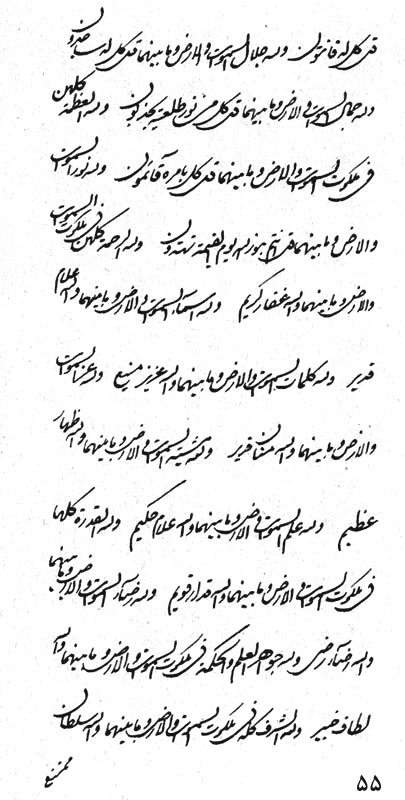 قل كل له قانتون ولله جلال السموات والارض وما بينهما قل كل له ساجدون
ولله جمال السموات والارض وما بينهما قل كل من نور طلعته يجذبون ولله العظمة كلهن
في ملكوت السموات والارض وما بينهما قل كل بامره قائمون ولله نور السموات
والارض وما بينهما قل انتم بنور الله يوم القيمة تهتدون ولله الرحمة كلهن في ملكوت السموات
والارض وما بينهما والله غفار كريم ولله اسماء السموات والارض وما بينهما والله علام
قدير ولله كلمات السموات والارض وما بينهما والله عزيز منيع ولله عزة السموات
والارض وما بينهما والله منان قدير ولله مشية السموات والارض وما بينهما والله ظهار
عظيم ولله علم السموات والارض وما بينهما والله علام حكيم ولله القدرة كلها
في ملكوت السموات والارض وما بينهما والله قدار قويم ولله رضاء السموات والارض وما بينهما
والله رضاء رضي ولله جواهر العلم والحكمة في ملكوت السموات والارض وما بينهما والله
لطاف خبير ولله الشرف كله في ملكوت السموات والارض وما بينهما والله سلطان
ممتنع
۵۵